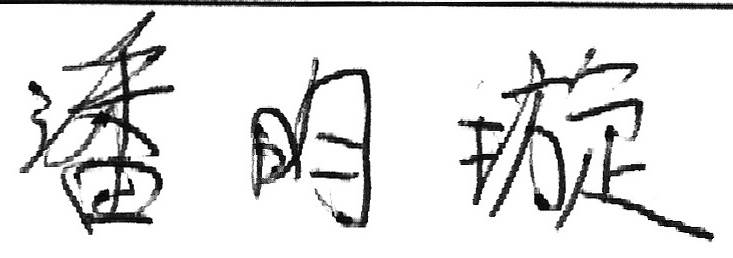 潘明璇